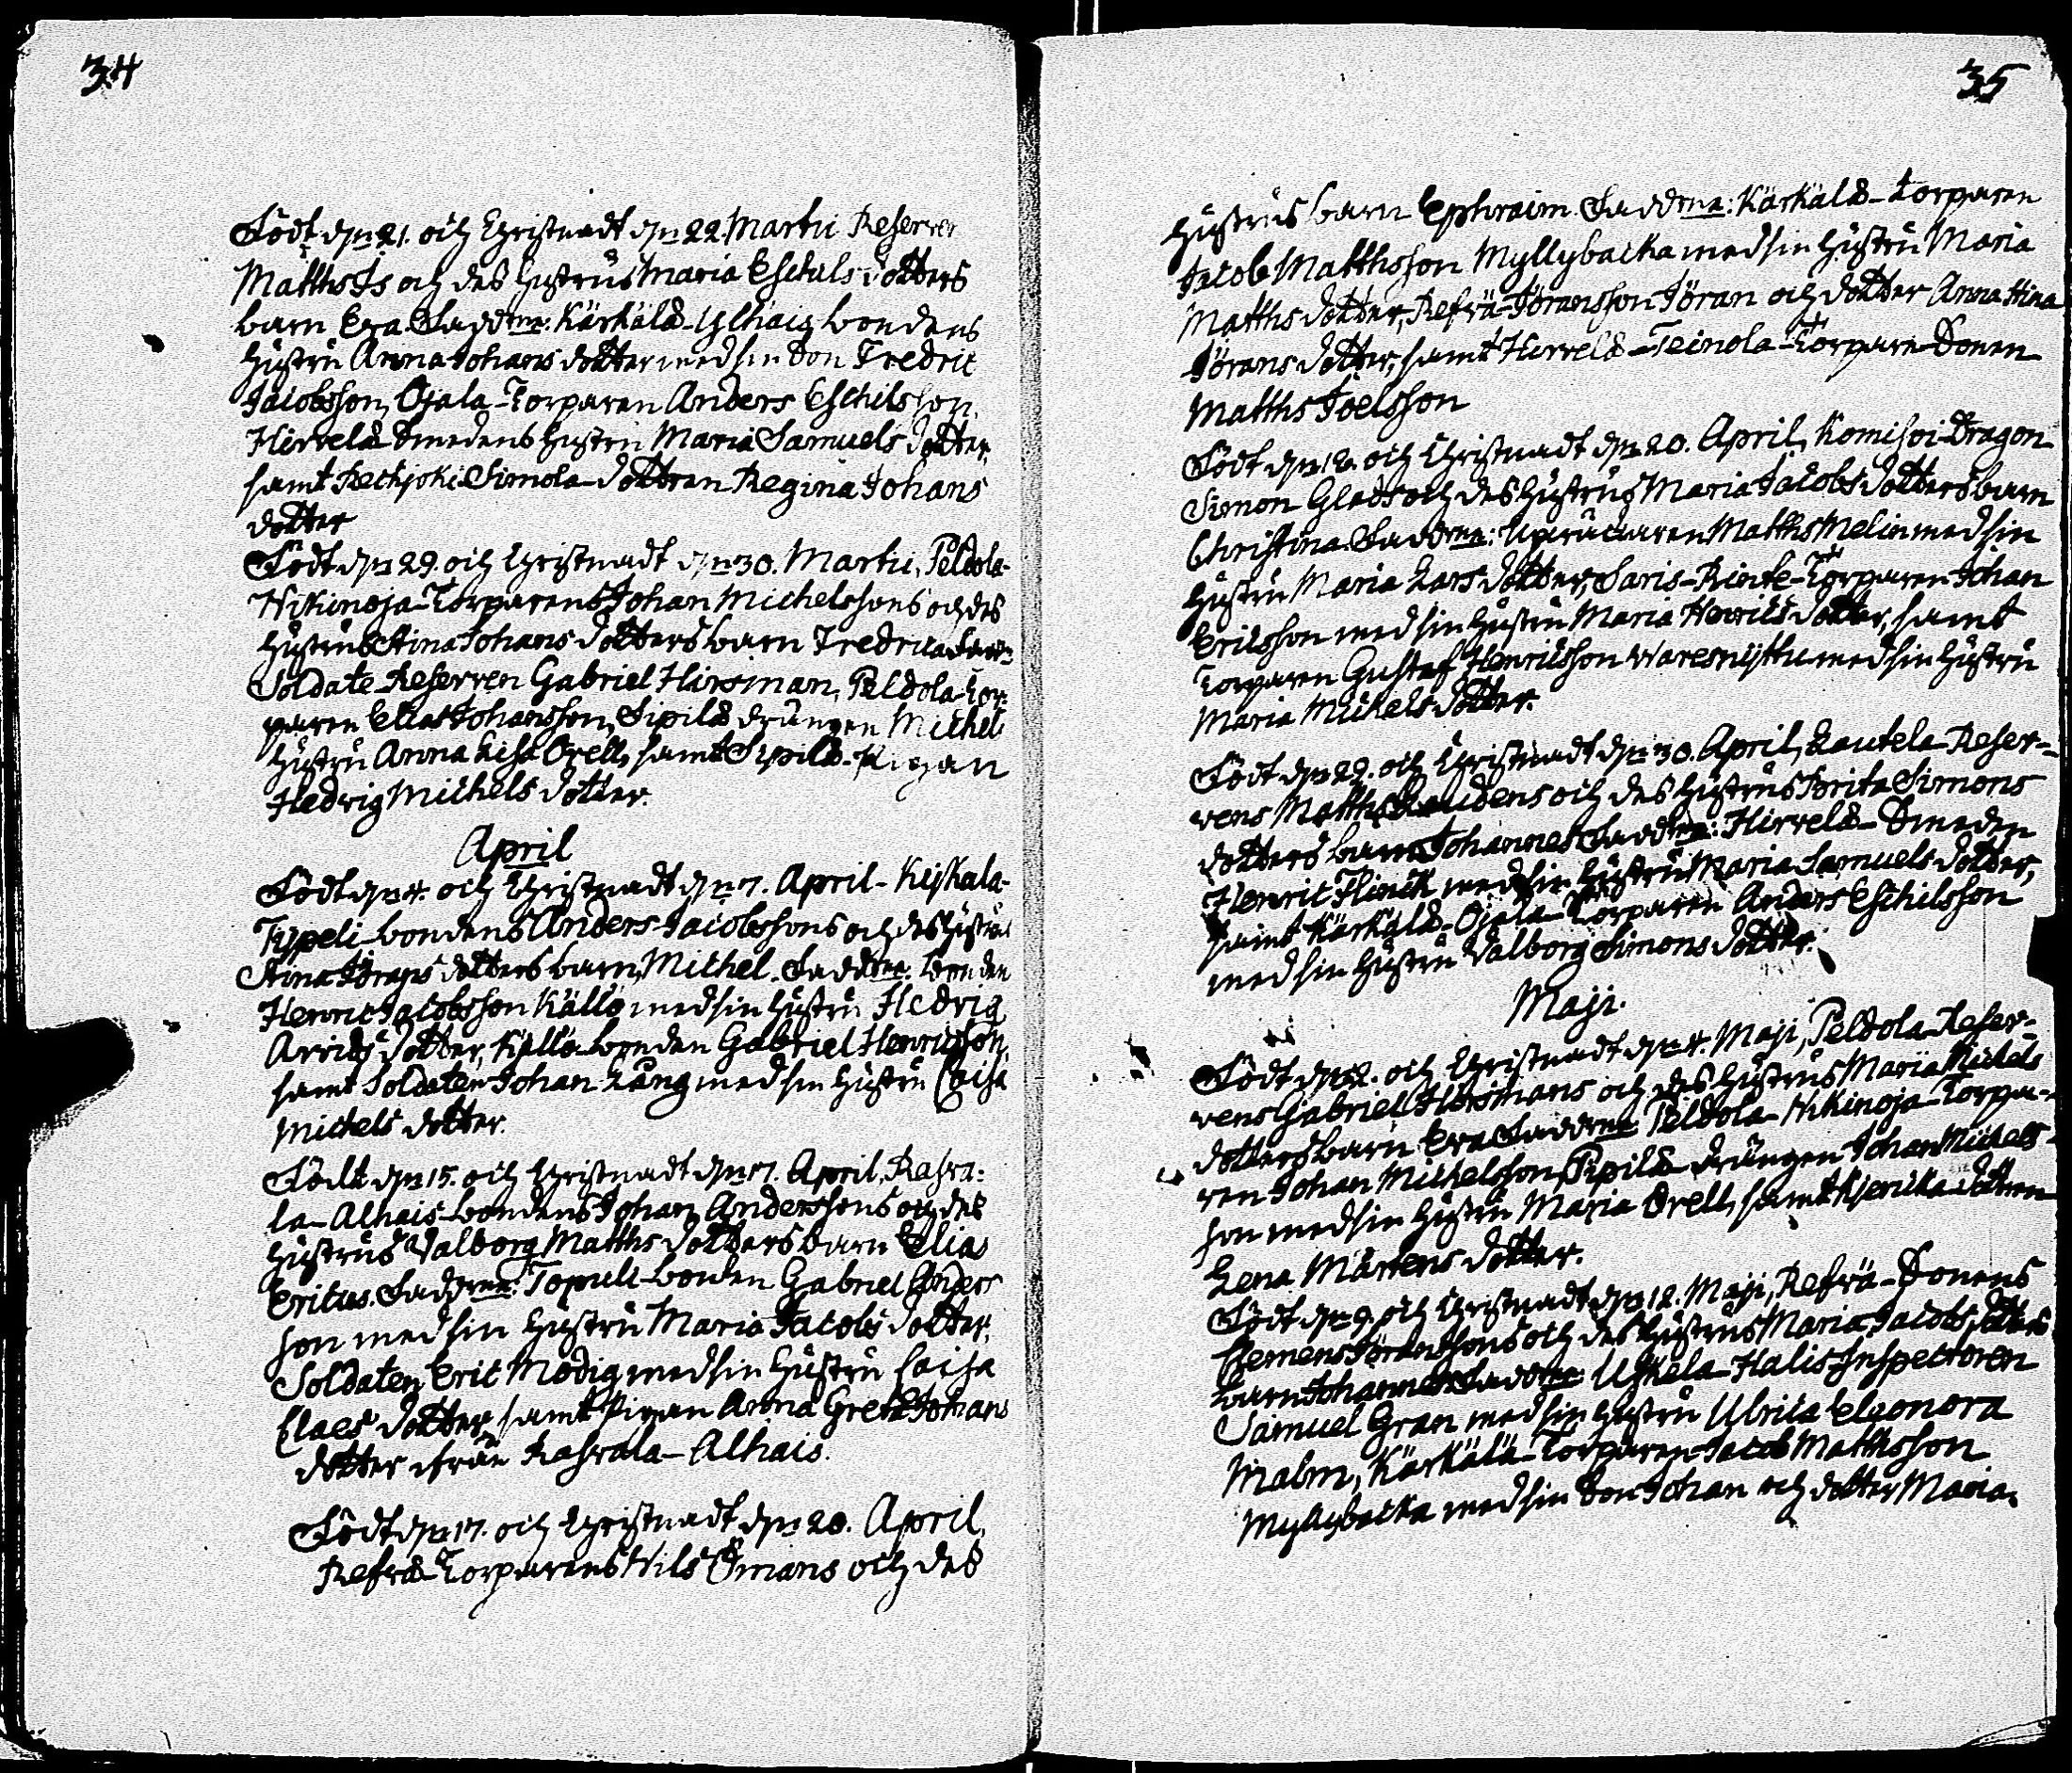 34
Född d:n 21. och Christnadt d:n 22. Martii Reserven
Matths Is och des hustrus Maria Eschils dotters
barn Eva. Faddrne: Kärkälä-Ylihaig bondens
hustru Anna Johans dotter med sin Son Fredric
Jacobsson, Ojala-Torparen Anders Eschilsson,
Hirvelä Smedens hustru Maria Samuels dotter,
samt Reckjoki Simola-dottren Regina Johans
dotter
Född d:n 29. och Christnadt d:n 30. Martii, Peldola-
Nikinoja-Torparens Johan Michelssons och des
hustrus Stina Johans dotters barn Fredrica Faddr:
Soldate-Reserven Gabriel Hirsman, Peldola-Tor-
paren Elias Johansson, Sipilä drängen Michel
hustru Anna Lisa Orell, samt Sipilä-Pigan
Hedvig Michels dotter.
April
Född d:n 4. och Christnadt d:n 7. April-Kiskala-
Typeli-bondens Anders Jacobssons och des hustrus
Stina Jörans dotters barn, Michel. Faddrne: bonden
Henric Jacobsson Källö med sin hustru Hedvig
Arvids dotter, Källö-bonden Gabriel Henricsson,
samt Soldaten Johan Lång med sin hustru Caisa
Michels dotter.
Född d:n 15. och Christnadt d:n 17. April, Rasva-
la-Alhais-bondens Johan Anderssons och des
hustrus Valborg Matths dotters barn Elias
Ericus. Faddrne: Topuli-bonden Gabriel Anders
son med sin hustru Maria Jacobs dotter,
Soldaten Eric Modig med sin hustru Caisa
Claes dotter, samt Pigan Anna Greta Johans
dotter ifrån Rasvala-Alhais.
Född d:n 17. och Christnadt d:n 20. April,
Refrä-Torparens Nils Ömans och des
35
Hustrus barn Ephraim. Faddrne: Kärkälä-Torparen
Jacob Matthsson Myllybacka med sin hustru Maria
Matths dotter, Refrä-Jöransson Jöran och dotter Anna Stina
Jörans dotter, samt Hirvelä-Teinola-Torpare-Sonen
Matths Joelsson
Född d:n 18. och Christnadt d:n 20. April, Komisoi-Dragon
Simon Glads och des hustrus Maria Jacobs dotters barn
Christina. Faddrne: Matths Melin med sin
hustru Maria Lars dotter, Saris-Rinte-Torparen Johan
Ericsson med sin hustru Maria Henrics dotter, samt
Torparen Gustaf Henricsson Waresnyttu med sin hustru
Maria Michels dotter.
Född d:n 29. och Christnadt d:n 30. April, Lautela-Reser-
vens Matths Laudens och des hustrus Brita Simons
dotters barn Johannes Faddrne: Hirvelä-Smeden
Henric Flinck med sin hustru Maria Samuels dotter,
samt Kärkälä-Ojala-Torparen Anders Eschilsson
med sin hustru Valborg Simons dotter.
Maji.
Född d:n 2. och Christnadt d:n 4. Maji, Peldola-Reser-
vens Gabriel Hirsmans och des hustrus Maria Michels
dotters barn Eva Faddrne Peldola-Nikinoja-Torpa-
ren Johan Michelsson, Sipilä drängen Johan Michels-
son med sin hustru Maria Orell, samt dottren
Lena Mårtens dotter.
Född d:n 9. och Christnadt d:n 12. Maji, Refrä-Sonens
Clemens Jöranssons och des hustrus Maria Jacobs dotters
barn Johannes Faddrne Uskela-Halis-Inspectoren
Samuel Gran med sin hustru Ulrica Eleonora
Malm, Kärkälä-Torparen Jacob Matthsson
Myllybacka med sin Son Johan och dotter Maria